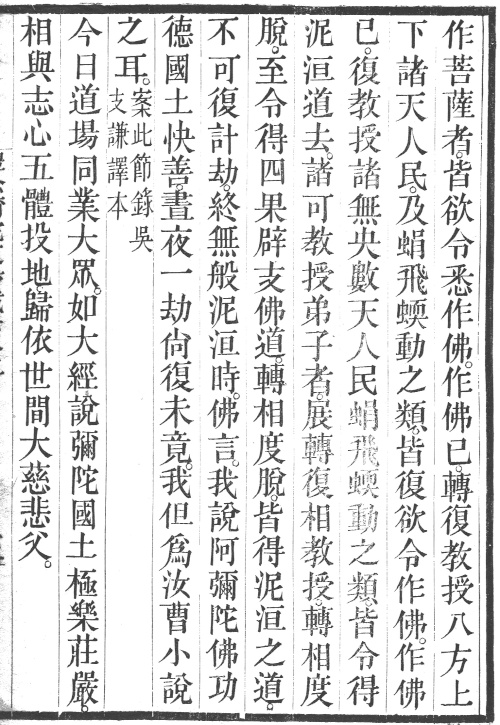 作菩薩者。皆欲令悉作佛。作佛已。轉復教授八方上
下諸天人民。及蜎飛蝡動之類。皆復欲令作佛。作佛
已。復教授諸無央數天人民蜎飛蝡動之類。皆令得
泥洹道去。諸可教授弟子者。展轉復相教授。轉相度
脫。至令得四果辟支佛道。轉相度脫。皆得泥洹之道。
不可復計劫。終無般泥洹時。佛言。我說阿彌陀佛功
德國土快善。晝夜一劫尙復未竟。我但爲汝曹小說
之耳。案此節錄吳
支謙譯本
今日道場同業大眾。如大經說彌陀國土極樂莊嚴。
相與志心五體投地。歸依世間大慈悲父。